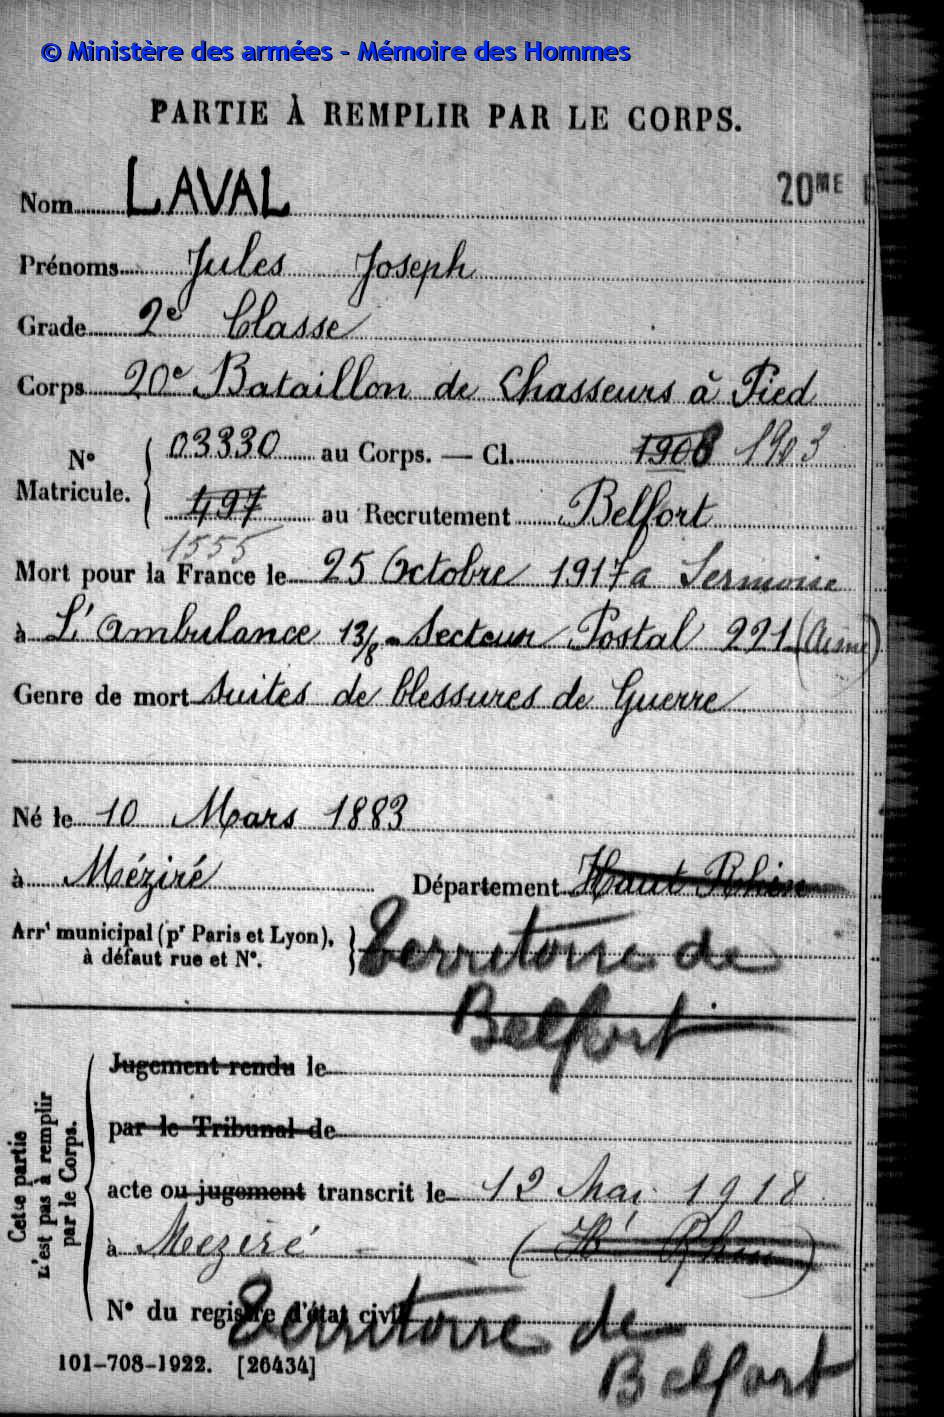 © Ministère des armées - Mémoire des Hommes
PARTIE À REMPLIR PAR LE CORPS.
20ME
Nom LAVAL
Prénoms Jules Joseph
Grade 2e Classe
Corps 20e Bataillon de Chasseurs à Pied
N° Matricule. 03330 au Corps. — Cl. 1903
497 au Recrutement Belfort
1555
Mort pour la France le 25 Octobre 1917 a Sermoise
à L'Ambulance 13/8 Secteur Postal 221 (Aisne)
Genre de mort suites de blessures de Guerre
Né le 10 Mars 1883
à Méziré Département Haut Rhin
Arrt municipal (pr Paris et Lyon),
à défaut rue et N°.
Territoire de
Belfort
Cette partie
n'est pas à remplir
par le Corps.
Jugement rendu le
par le Tribunal de
acte ou jugement transcrit le 12 Mai 1918
à Meziré (Ht Rhin)
N° du registre d'état civil
Territoire de
Belfort
101-708-1922. [26434]